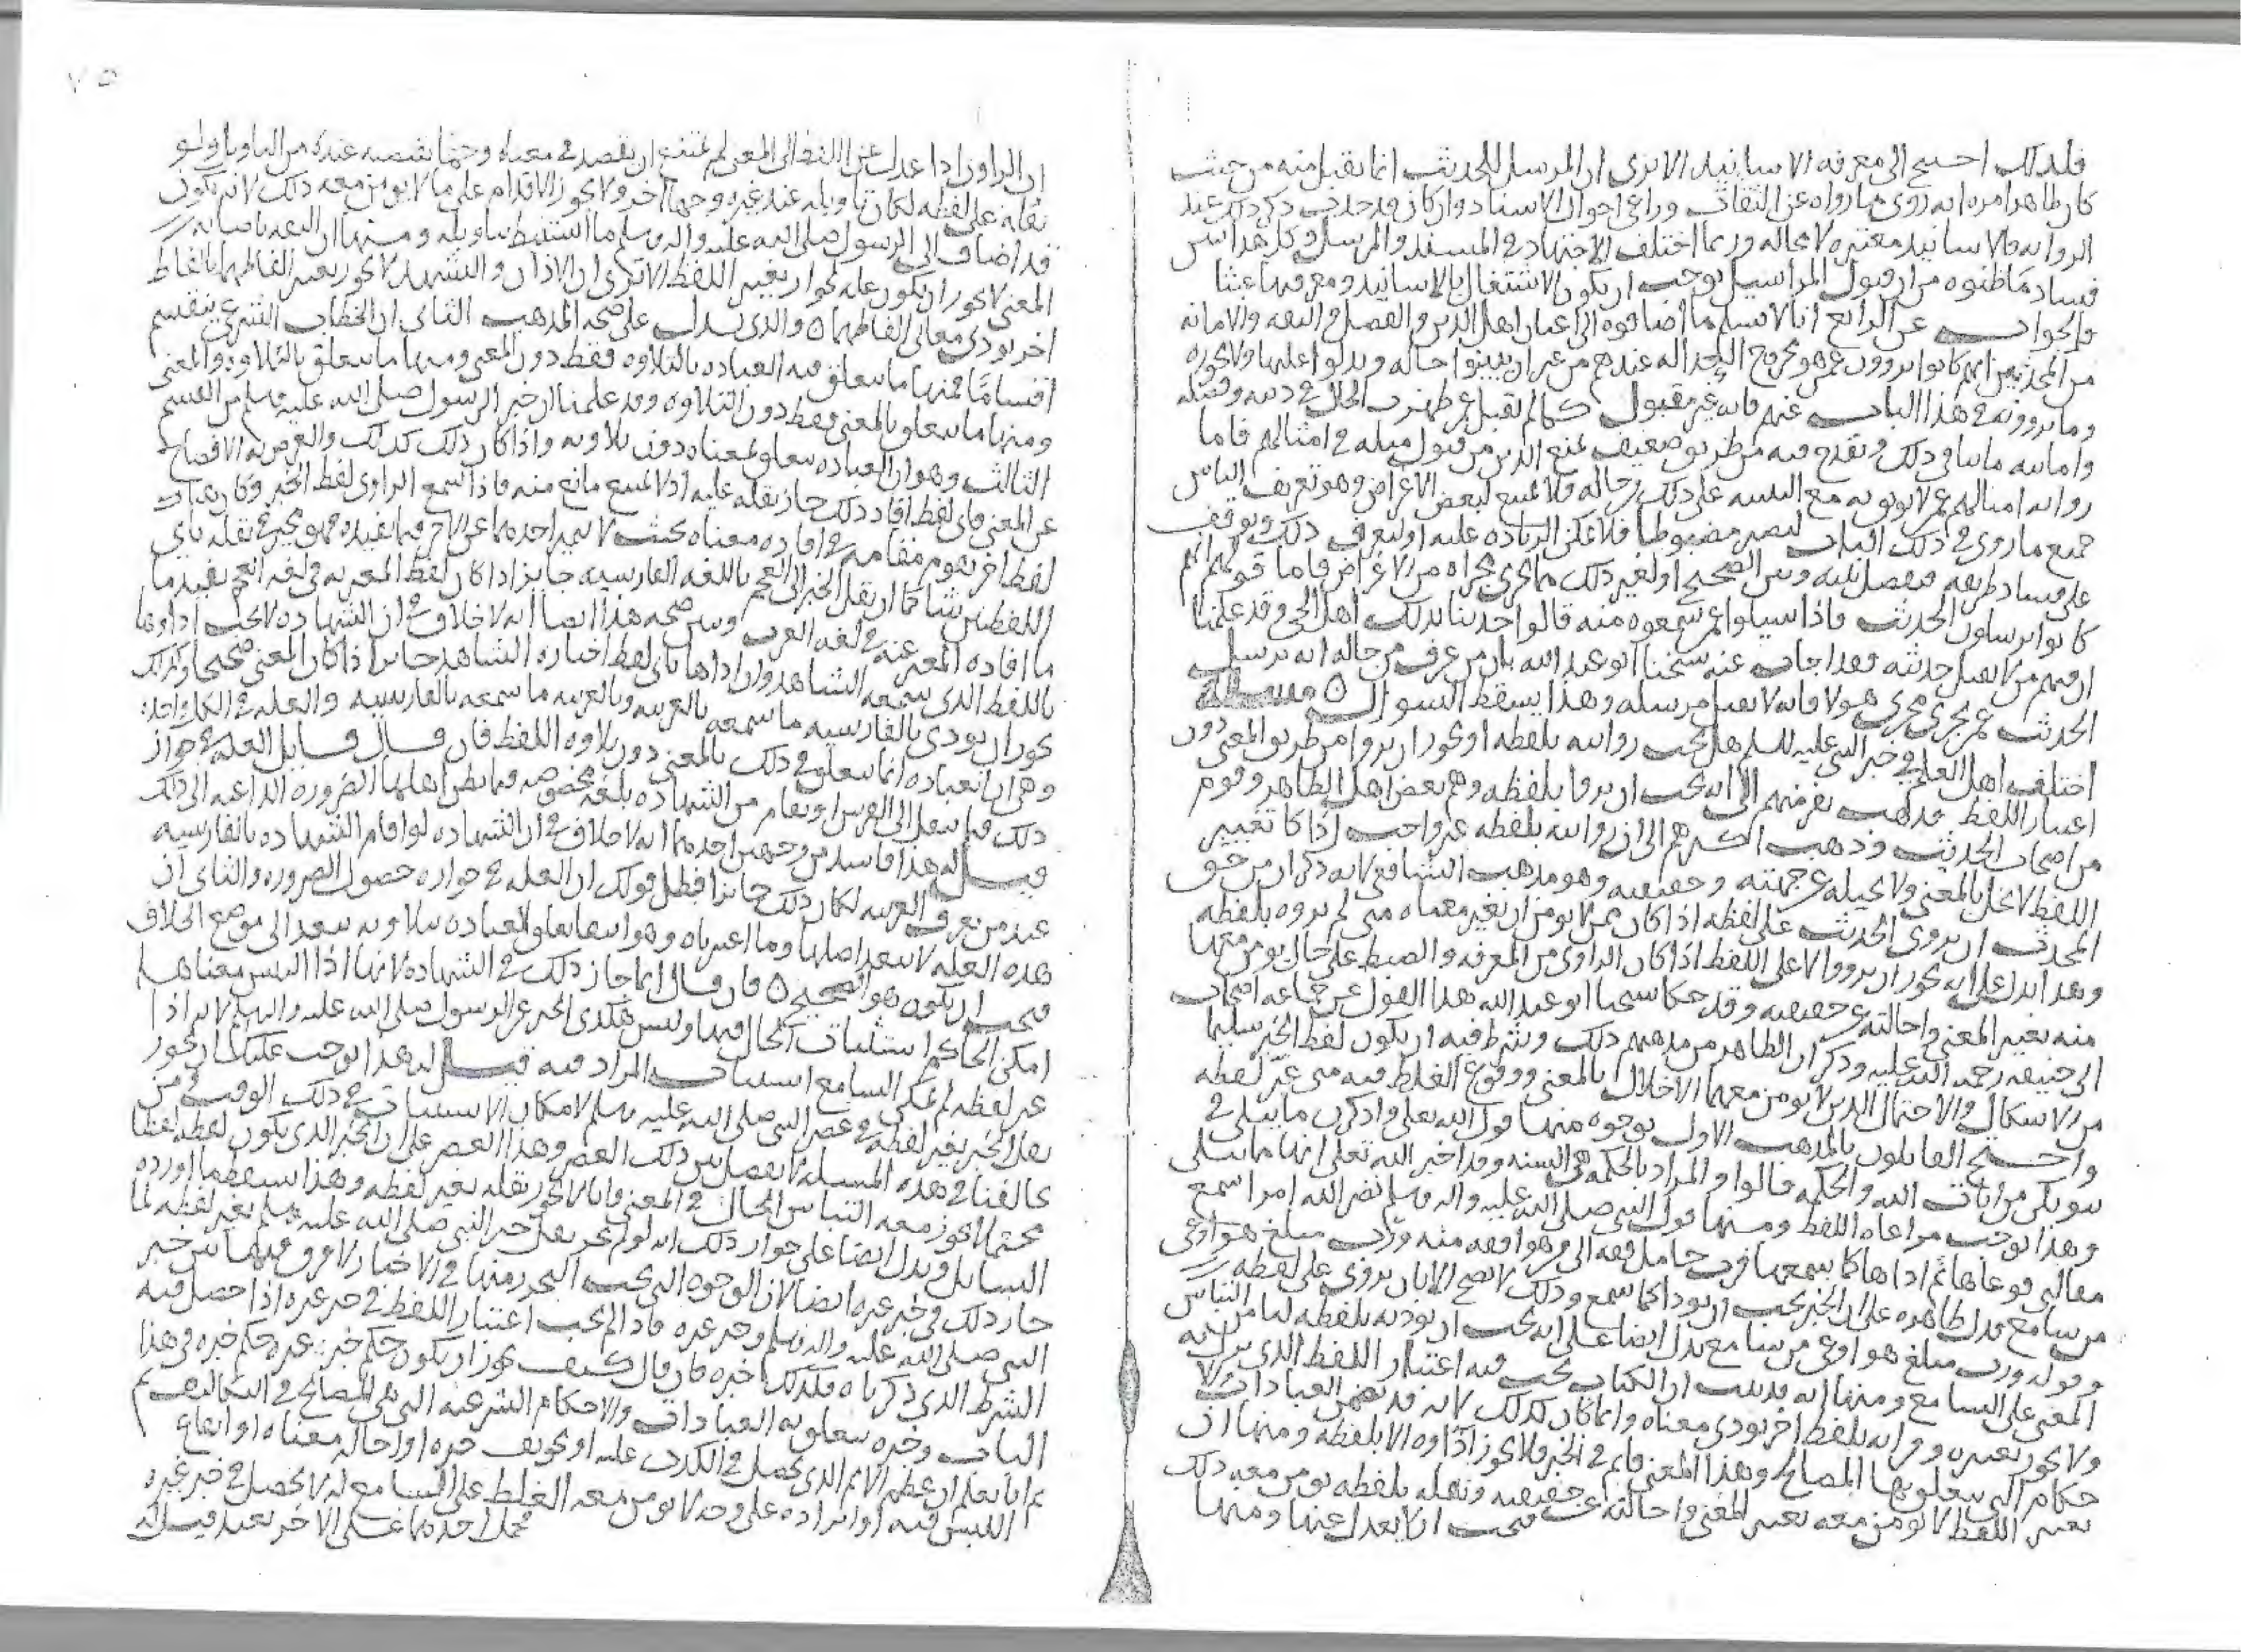 فلذلك احتيج الى معرفه الاسانيد الا ترى ان المرسل للحديث انما تقبل منه من حيث
كان ظاهر امره انه روى ما رواه عن الثقات وراعى احوال الاسناد وان كان قد حذف ذكر ذلك عند
الروايه فالاسانيد معتبره لا محاله وربما اختلف الاجتهاد في المسند والمرسل وكل هذا
فساد ما ظنوه من ان قبول المراسيل يوجب ان يكون الاشتغال بالاسانيد ومعرفتها عبثا
والجواب عن الرابع انا لا نسلم ما اضافوه الى اهل الدين والفضل والثقه والامانه
من المحدثين انهم كانوا يروون عمن هو مجروح العداله عندهم من غير ان يبينوا حاله ويدلوا عليها
وما يروونه في هذا الباب عنهم فانه غير مقبول كما لم تقبل عمن ظهرت الحال في دينه
وامانته ما ينافي ذلك ويقدح فيه من طريق ضعيف يمنع الدين من قبول مثله في امثالهم فاما
روايه امثالهم عمن لا يوثق به مع التنبيه على ذلك من حاله فلا يمتنع لبعض الاغراض وهو تعريف الناس
جميع ما روى في ذلك الباب ليصير مضبوطا فلا يمكن الزياده عليه او ليعرف ذلك ويوقف
على فساد طريقه فيفصل بينه وبين الصحيح او لغير ذلك مما يجرى مجراه من الاغراض فاما قولهم انهم
كانوا يرسلون الحديث فاذا سيلوا عمن سمعوه منه قالوا حدثنا بذلك اهل الحي وقد علمنا
ان فيهم من لا يقبل حديثه فقد اجاب عنه شيخنا ابو عبد الله بان من عرف من حاله انه يرسل
الحديث عمن يجرى مجرى هولا فانه لا يقبل مرسله وهذا يسقط السوال ٥ مسله
اختلف اهل العلم في خبر النبى عليه السلم هل يجب روايته بلفظه او يجوز ان يروا من طريق المعنى دون
اعتبار اللفظ فذهب نفر منهم الى انه يجب ان يروا بلفظه وهم بعض اهل الظاهر وقوم
من اصحاب الحديث وذهب اكثرهم الى ان روايته بلفظه غير واجب اذا كان تغيير
اللفظ لا يخل بالمعنى ولا يحيله عن جهته وحقيقته وهو مذهب الشافعى لانه ذكر ان من حق
المحدث ان يروى الحديث على لفظه اذا كان ممن لا يومن ان يغير معناه متى لم يروه بلفظه
وهذا يدل على انه يجوز ان يرووا لا على اللفظ اذا كان الراوى من المعرفه والضبط على حال يومن معها
منه تغيير المعنى واحالته عن حقيقته وقد حكا شيخنا ابو عبد الله هذا القول عن جماعه اصحاب
ابى حنيفه رحمه الله عليه وذكر ان الظاهر من مذهبهم ذلك وشرط فيه ان يكون لفظ الخبر سليما
من الاشكال والاحتمال الذين لا يومن معهما الاخلال بالمعنى ووقوع الغلط فيه متى غير لفظه
واحتج القايلون بالمذهب الاول بوجوه منها قول الله تعلى واذكرن ما يتلى في
بيوتكن من ايات الله والحكمه قالوا والمراد بالحكمه هى السنه وقد اخبر الله تعلى انها مما يتلى
وهذا يوجب مراعاه اللفظ ومنها قول النبى صلى الله عليه واله وسلم نضر الله امرا سمع
مقالتى فوعاها ثم اداها كما سمعها فرب حامل فقه الى من هو افقه منه ورب مبلغ هو اوعى
من سامع فدل ظاهره على ان الخبر يجب ان يودا كما سمع وذلك لا يصح الا بان يروى على لفظه
وقوله ورب مبلغ هو اوعى من سامع يدل ايضا على انه يجب ان يوديه بلفظه
المعنى على السامع ومنها انه قد ثبت ان الكتاب يجب فيه اعتبار اللفظ الذى نزل به
ولا يجوز تغييره وقرانه بلفظ اخر يودى معناه وانما كان كذلك لانه قد تضمن العبادات
حكام التى يتعلق بها المصالح وهذا المعنى قايم في الخبر فلا يجوز اداوه الا بلفظه ومنها ان
تغيير اللفظ لا يومن معه تغيير المعنى واحالته عن حقيقته ونقله بلفظه يومن معه ذلك فيجب ان لا يعدل عنها ومنها
ان الراوى اذا عدل عن اللفظ الى المعنى لم يمتنع ان يقصد في معناه وجها يقتضيه عنده من التاويل ولو
نقله على لفظه لكان تاويله عند غيره وجها اخر ولا يجوز الاقدام على ما لا يومن معه ذلك لانه يكون
قد اضاف الى الرسول صلى الله عليه واله وسلم ما استنبطه بتاويله ومنها ان
المعنى لا يجوز ان يكون عله لجواز تغيير اللفظ الا ترى ان الاذان والتشهد لا يجوز تغيير الفاظهما بالفاظ
اخر تودى معانى الفاظهما ٥ والذى يدل على صحه المذهب الثانى ان الخطاب الشرعى ينقسم
اقساما فمنها ما يتعلق فيه العباده بالتلاوه فقط دون المعنى ومنها ما يتعلق بالتلاوه والمعنى
ومنها ما يتعلق بالمعنى فقط دون التلاوه وقد علمنا ان خبر الرسول صلى الله عليه وسلم من القسم
الثالث وهو ان العباده يتعلق بمعناه دون تلاوته واذا كان ذلك كذلك والغرض به الافصاح
عن المعنى فاى لفظ افاد ذلك جاز نقله عليه اذ لا يمنع مانع منه فاذا سمع الراوى لفظ الخبر وكان
لفظ اخر يقوم مقامه في افاده معناه بحيث لا يميز احدهما عن الاخر فيما يفيده فهو مخير في نقله باى
اللفظين شا كما ان نقل الخبر الى العجم باللغه الفارسيه جايز اذا كان لفظ المعبر به في لغه العجم يفيد ما
ما افاده المعبر عنه في لغه العرب وبين صحه هذا ايضا انه لا خلاف في ان الشهاده لا يجب اداوها
باللفظ الذى سمعه الشاهد وان اداها باى لفظ اختاره الشاهد جايز اذا كان المعنى صحيحا وكذلك
يجوز ان يودى بالفارسيه ما سمعه بالعربيه وبالعربيه ما سمعه بالفارسيه والعله في الكل واحده
وهى ان تعباده انما يتعلق في ذلك بالمعنى دون تلاوه اللفظ فان قال قايل العله في جواز
ذلك فيما ينقل الى الفرس او يقام من الشهاده بلغه مخصوصه الضروره الداعيه الى ذلك
قيل له هذا فاسد من وجهين احدهما انه لا خلاف في ان الشهاده لو اقام الشهاده بالفارسيه
عند من يعرف العربيه لكان ذلك جايزا فبطل قولك ان العله في جوازه حصول الضروره والثانى ان
هذه العله لا تتعد اصلها وما اعتبرناه وهو تعلق العباده بتلاوته يتعد الى موضع الخلاف
فيجب ان يكون هو الصحيح ٥ فان قال انما جاز ذلك في الشهاده لانها اذا التبس معناها
امكن الحاكم استثبات الحال فيها وليس هكذى الخبر عن الرسول صلى الله عليه واله وسلم لانه اذا
غير لفظه لم يمكن السامع استثبات المراد فيه قيل له هذا يوجب عليك ان تجوز
نقل الخبر بغير لفظه في عصر النبى صلى الله عليه وسلم لامكان الاستثبات في ذلك الوقت
خالفنا في هذه المسله لا يفصل بين ذلك العصر وهذا العصر على ان الخبر الذى يكون لفظه لفظا
محتملا يجوز معه التباس الحال في المعنى فانا لا نجوز نقله بغير لفظه وهذا يسقط ما اورده
السايل ويدل ايضا على جواز ذلك انه لو لم يجز نقل خبر النبى صلى الله عليه وسلم بغير لفظه لما
جاز ذلك في خبر غيره ايضا لان الوجوه التى يجب التحرز منها في الاخبار لا فرق فيها بين خبر
النبى صلى الله عليه واله وسلم وخبر غيره فاذا لم يجب اعتبار اللفظ في خبر غيره اذا حصل فيه
الشرط الذى ذكرناه فكذلك خبره فان قال كيف يجوز ان يكون حكم خبر غيره حكم خبره في هذا
الباب وخبره يتعلق به العبادات والاحكام الشرعيه التى هى المصالح في التكاليف ثم
انا نعلم ان عظم الاثم الذى يحصل في الكذب عليه او تحريف خبره او احاله معناه او ايقاع
اللبس فيه او ايراده على وجه لا يومن معه الغلط على السامع له لا يحصل في خبر غيره
فحمل احدهما على الاخر بعيد قيل له